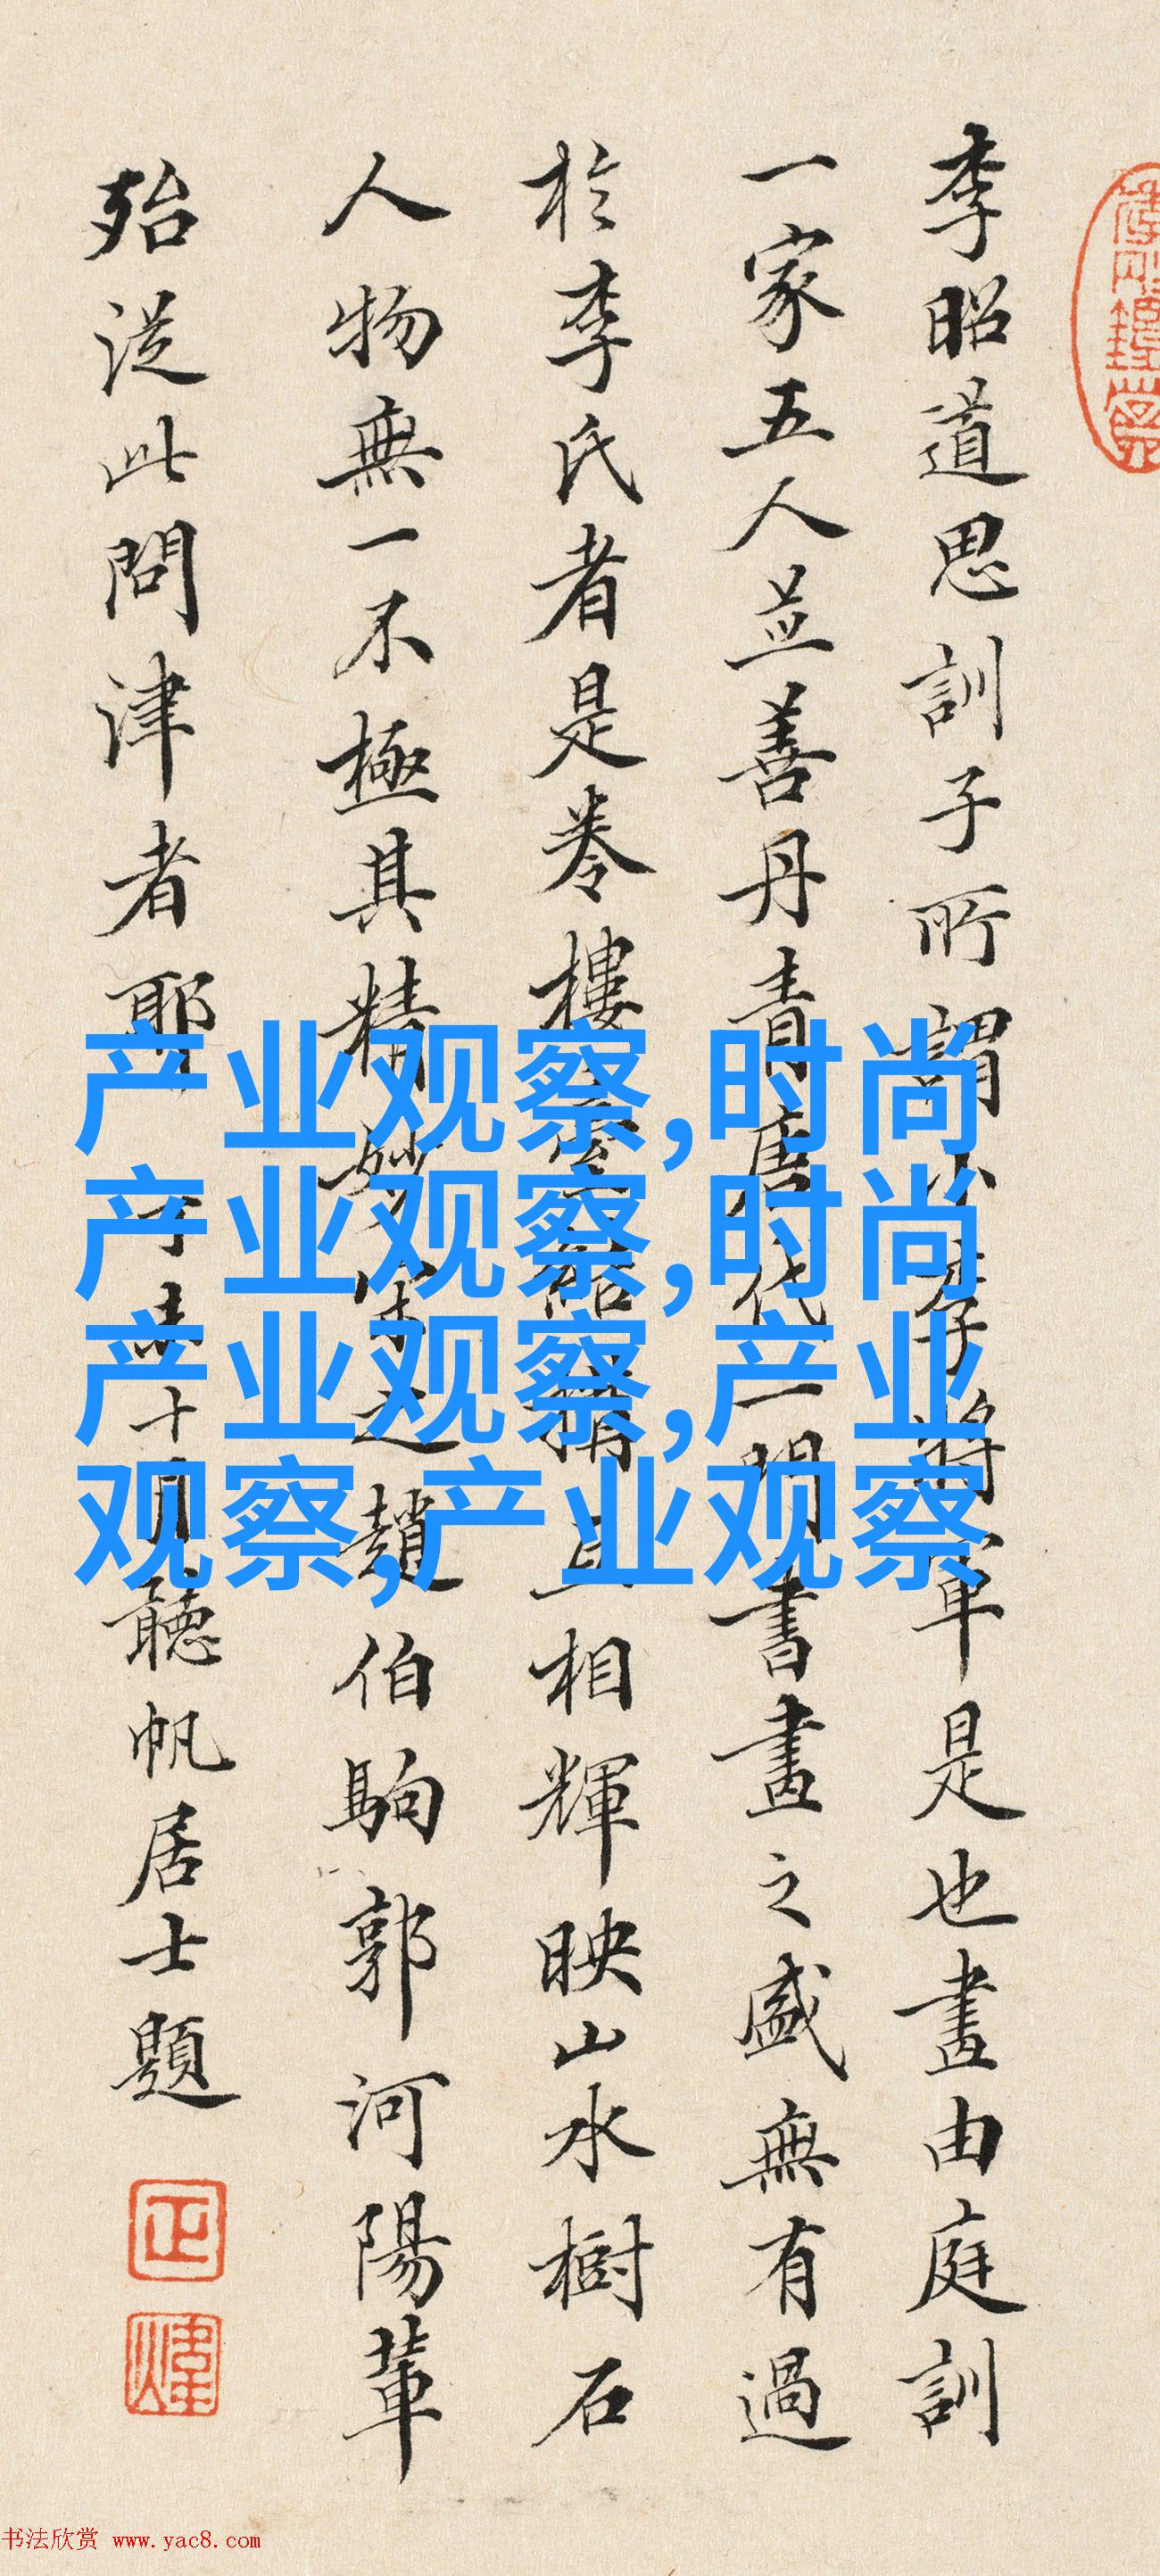 李昭道思訓子所謂小李将軍是也畫由庭訓
一家五人並善丹青唐代一門書畫之盛無有過
於李氏者是卷樓臺結構互相輝映山水樹石
人物無一不極其精妙宋之趙伯駒郭河陽輩
殆從此問津者耶 未十月聽帆居士題
正
煒
产业观察,时尚
产业观察,时尚
产业观察,产业
观察,产业观察
书法欣赏 www.yac8.com